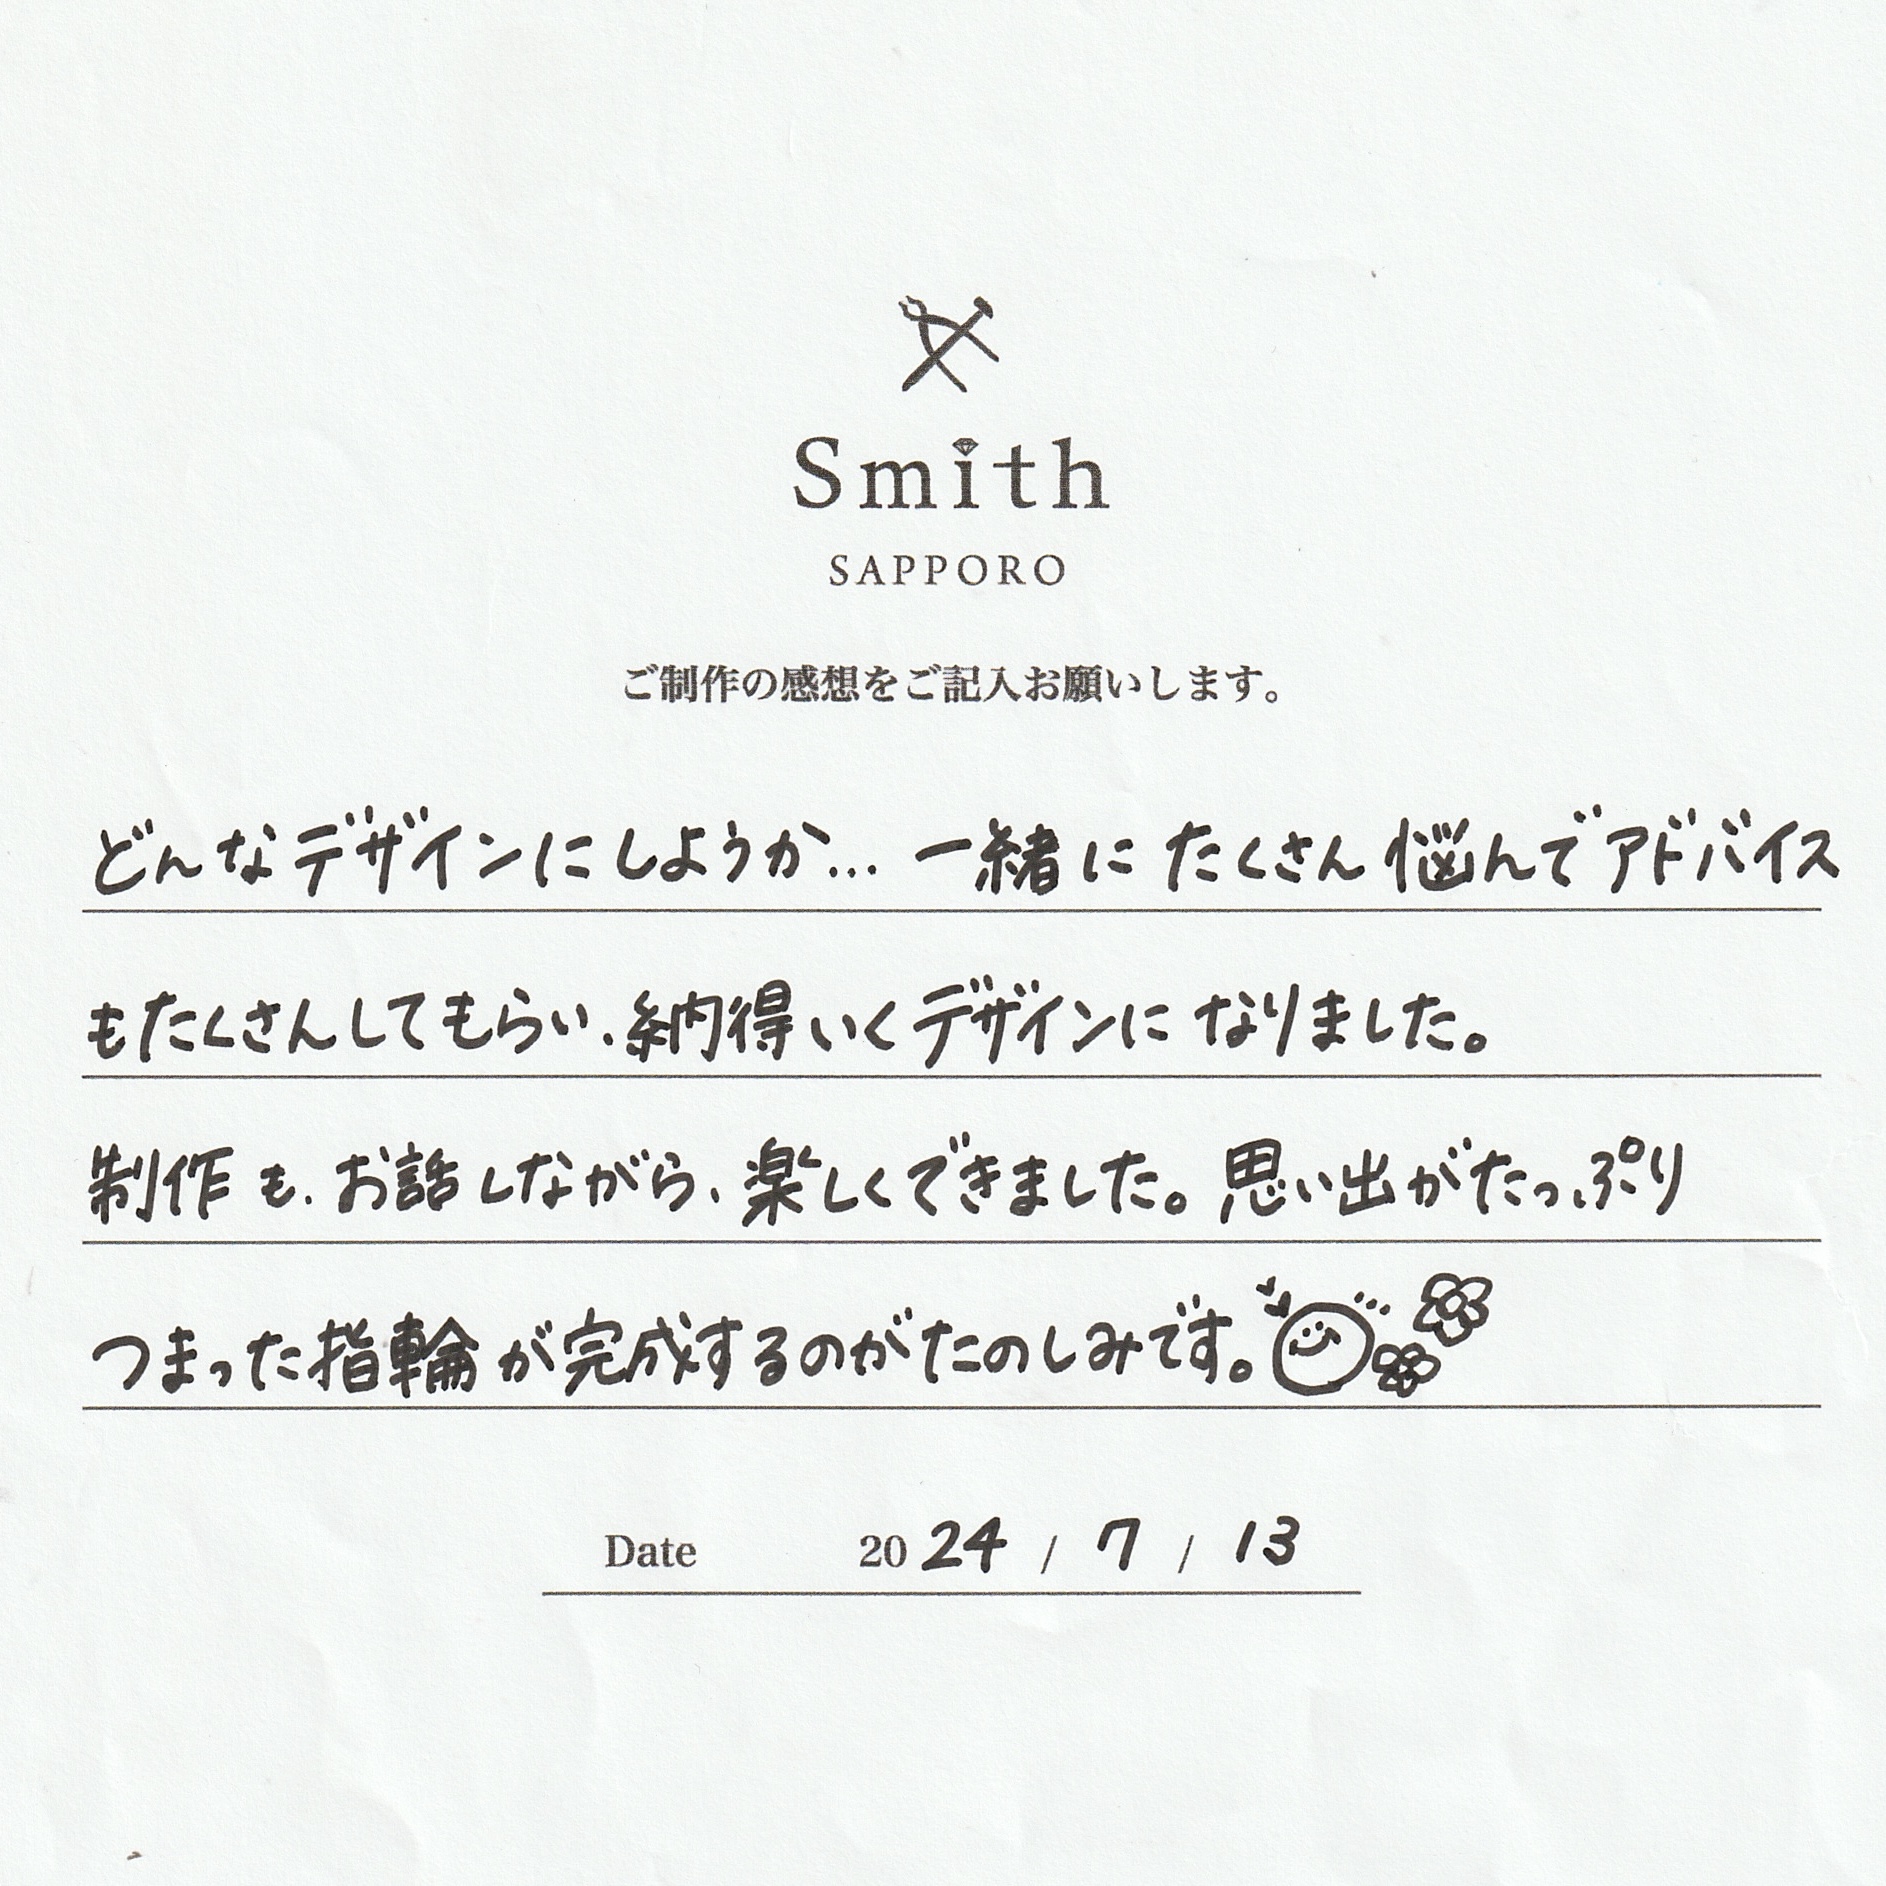 Smith
SAPPORO
ご制作の感想をご記入お願いします。
どんなデザインにしようか… 一緒にたくさん悩んでアドバイス
もたくさんしてもらい、納得いくデザインになりました。
制作も、お話しながら、楽しくできました。思い出がたっぷり
つまった指輪が完成するのがたのしみです。
Date 2024 / 7 / 13